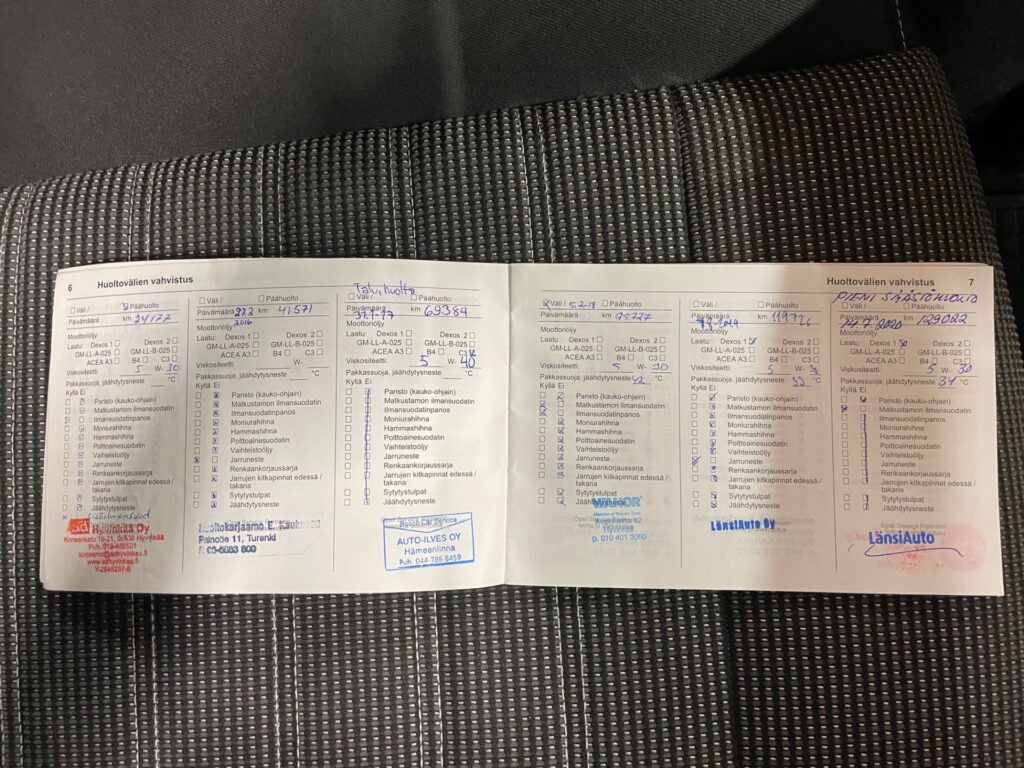 6 Huoltovälien vahvistus
Väli / Päähuolto
Päivämäärä km 24177
Moottoriöljy
Laatu: Dexos 1 Dexos 2
GM-LL-A-025 GM-LL-B-025
ACEA A3 B4 C3
Viskositeetti: 5 W- 30
Pakkassuoja, jäähdytysneste °C
Kyllä Ei
Paristo (kauko-ohjain)
Matkustamon ilmansuodatin
Ilmansuodatinpanos
Moniurahihna
Hammashihna
Polttoainesuodatin
Vaihteistoöljy
Jarruneste
Renkaankorjaussarja
Jarrujen kitkapinnat edessä /
takana
Sytytystulpat
Jäähdytysneste
ad Hyvinkää Oy
Puh. 019-460501
korjaamo@adhyvinkaa.fi
www.adhyvinkaa.fi
Väli / Päähuolto
Päivämäärä km 41571
2016
Moottoriöljy
Laatu: Dexos 1 Dexos 2
GM-LL-A-025 GM-LL-B-025
ACEA A3 B4 C3
Viskositeetti: W-
Pakkassuoja, jäähdytysneste °C
Kyllä Ei
Paristo (kauko-ohjain)
Matkustamon ilmansuodatin
Ilmansuodatinpanos
Moniurahihna
Hammashihna
Polttoainesuodatin
Vaihteistoöljy
Jarruneste
Renkaankorjaussarja
Jarrujen kitkapinnat edessä /
takana
Sytytystulpat
Jäähdytysneste
Huoltokorjaamo E.
Painotie 11, Turenki
Talvihuolto
Väli / Päähuolto
Päivämäärä km 69384
Moottoriöljy
Laatu: Dexos 1 Dexos 2
GM-LL-A-025 GM-LL-B-025
ACEA A3 B4 C3
Viskositeetti: 5 W- 40
Pakkassuoja, jäähdytysneste °C
Kyllä Ei
Paristo (kauko-ohjain)
Matkustamon ilmansuodatin
Ilmansuodatinpanos
Moniurahihna
Hammashihna
Polttoainesuodatin
Vaihteistoöljy
Jarruneste
Renkaankorjaussarja
Jarrujen kitkapinnat edessä /
takana
Sytytystulpat
Jäähdytysneste
Bosch Car Service
AUTO-ILVES OY
Hämeenlinna
Puh. 044-786 6459
Huoltovälien vahvistus 7
Väli / 5.2.18 Päähuolto
Päivämäärä km 95727
Moottoriöljy
Laatu: Dexos 1 Dexos 2
GM-LL-A-025 GM-LL-B-025
ACEA A3 B4 C3
Viskositeetti: 5 W- 30
Pakkassuoja, jäähdytysneste °C
Kyllä Ei
Paristo (kauko-ohjain)
Matkustamon ilmansuodatin
Ilmansuodatinpanos
Moniurahihna
Hammashihna
Polttoainesuodatin
Vaihteistoöljy
Jarruneste
Renkaankorjaussarja
Jarrujen kitkapinnat edessä /
takana
Sytytystulpat
VIANOR
Hyvinkää
p. 010 401 3000
Väli / Päähuolto
Päivämäärä km
Moottoriöljy
Laatu: Dexos 1 Dexos 2
GM-LL-A-025 GM-LL-B-025
ACEA A3 B4 C3
Viskositeetti: 5 W-
Pakkassuoja, jäähdytysneste 32 °C
Kyllä Ei
Paristo (kauko-ohjain)
Matkustamon ilmansuodatin
Ilmansuodatinpanos
Moniurahihna
Hammashihna
Polttoainesuodatin
Vaihteistoöljy
Jarruneste
Renkaankorjaussarja
Jarrujen kitkapinnat edessä /
takana
Sytytystulpat
Jäähdytysneste
LänsiAuto Oy
PIENI
Väli / Päähuolto
Päivämäärä 14.7.2020 km 129022
Moottoriöljy
Laatu: Dexos 1 Dexos 2
GM-LL-A-025 GM-LL-B-025
ACEA A3 B4 C3
Viskositeetti: 5 W- 30
Pakkassuoja, jäähdytysneste 34 °C
Kyllä Ei
Paristo (kauko-ohjain)
Matkustamon ilmansuodatin
Ilmansuodatinpanos
Moniurahihna
Hammashihna
Polttoainesuodatin
Vaihteistoöljy
Jarruneste
Renkaankorjaussarja
Jarrujen kitkapinnat edessä /
takana
Sytytystulpat
Jäähdytysneste
LänsiAuto